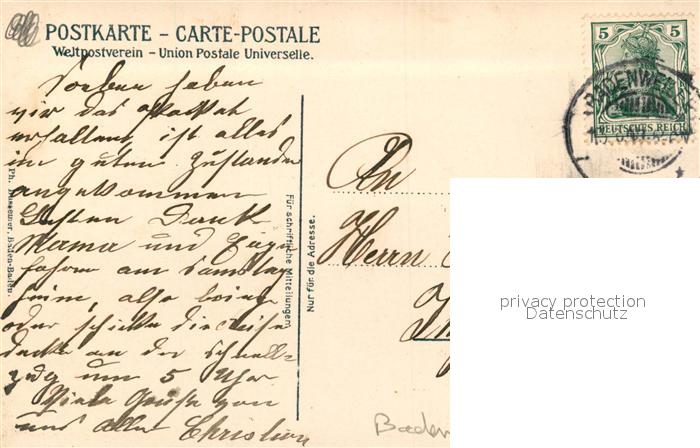 POSTKARTE – CARTE-POSTALE
Weltpostverein – Union Postale Universelle.
5 5
BADENWEI
DEUTSCHES REICH
Soeben haben
wir das Packet
erhalten, ist alles
im guten Zustande
angekommen
Besten Dank
Mama und
fahren am Samstag
heim, also bringe
oder schicke die Reise
decke an den Schnell-
zug um 5 Uhr
Viele Grüße von
uns allen Christian
Ph. Hussemer, Baden-Baden.
Für schriftliche Mitteilungen
Nur für die Adresse.
An
Herrn
privacy protection
Datenschutz
Baden